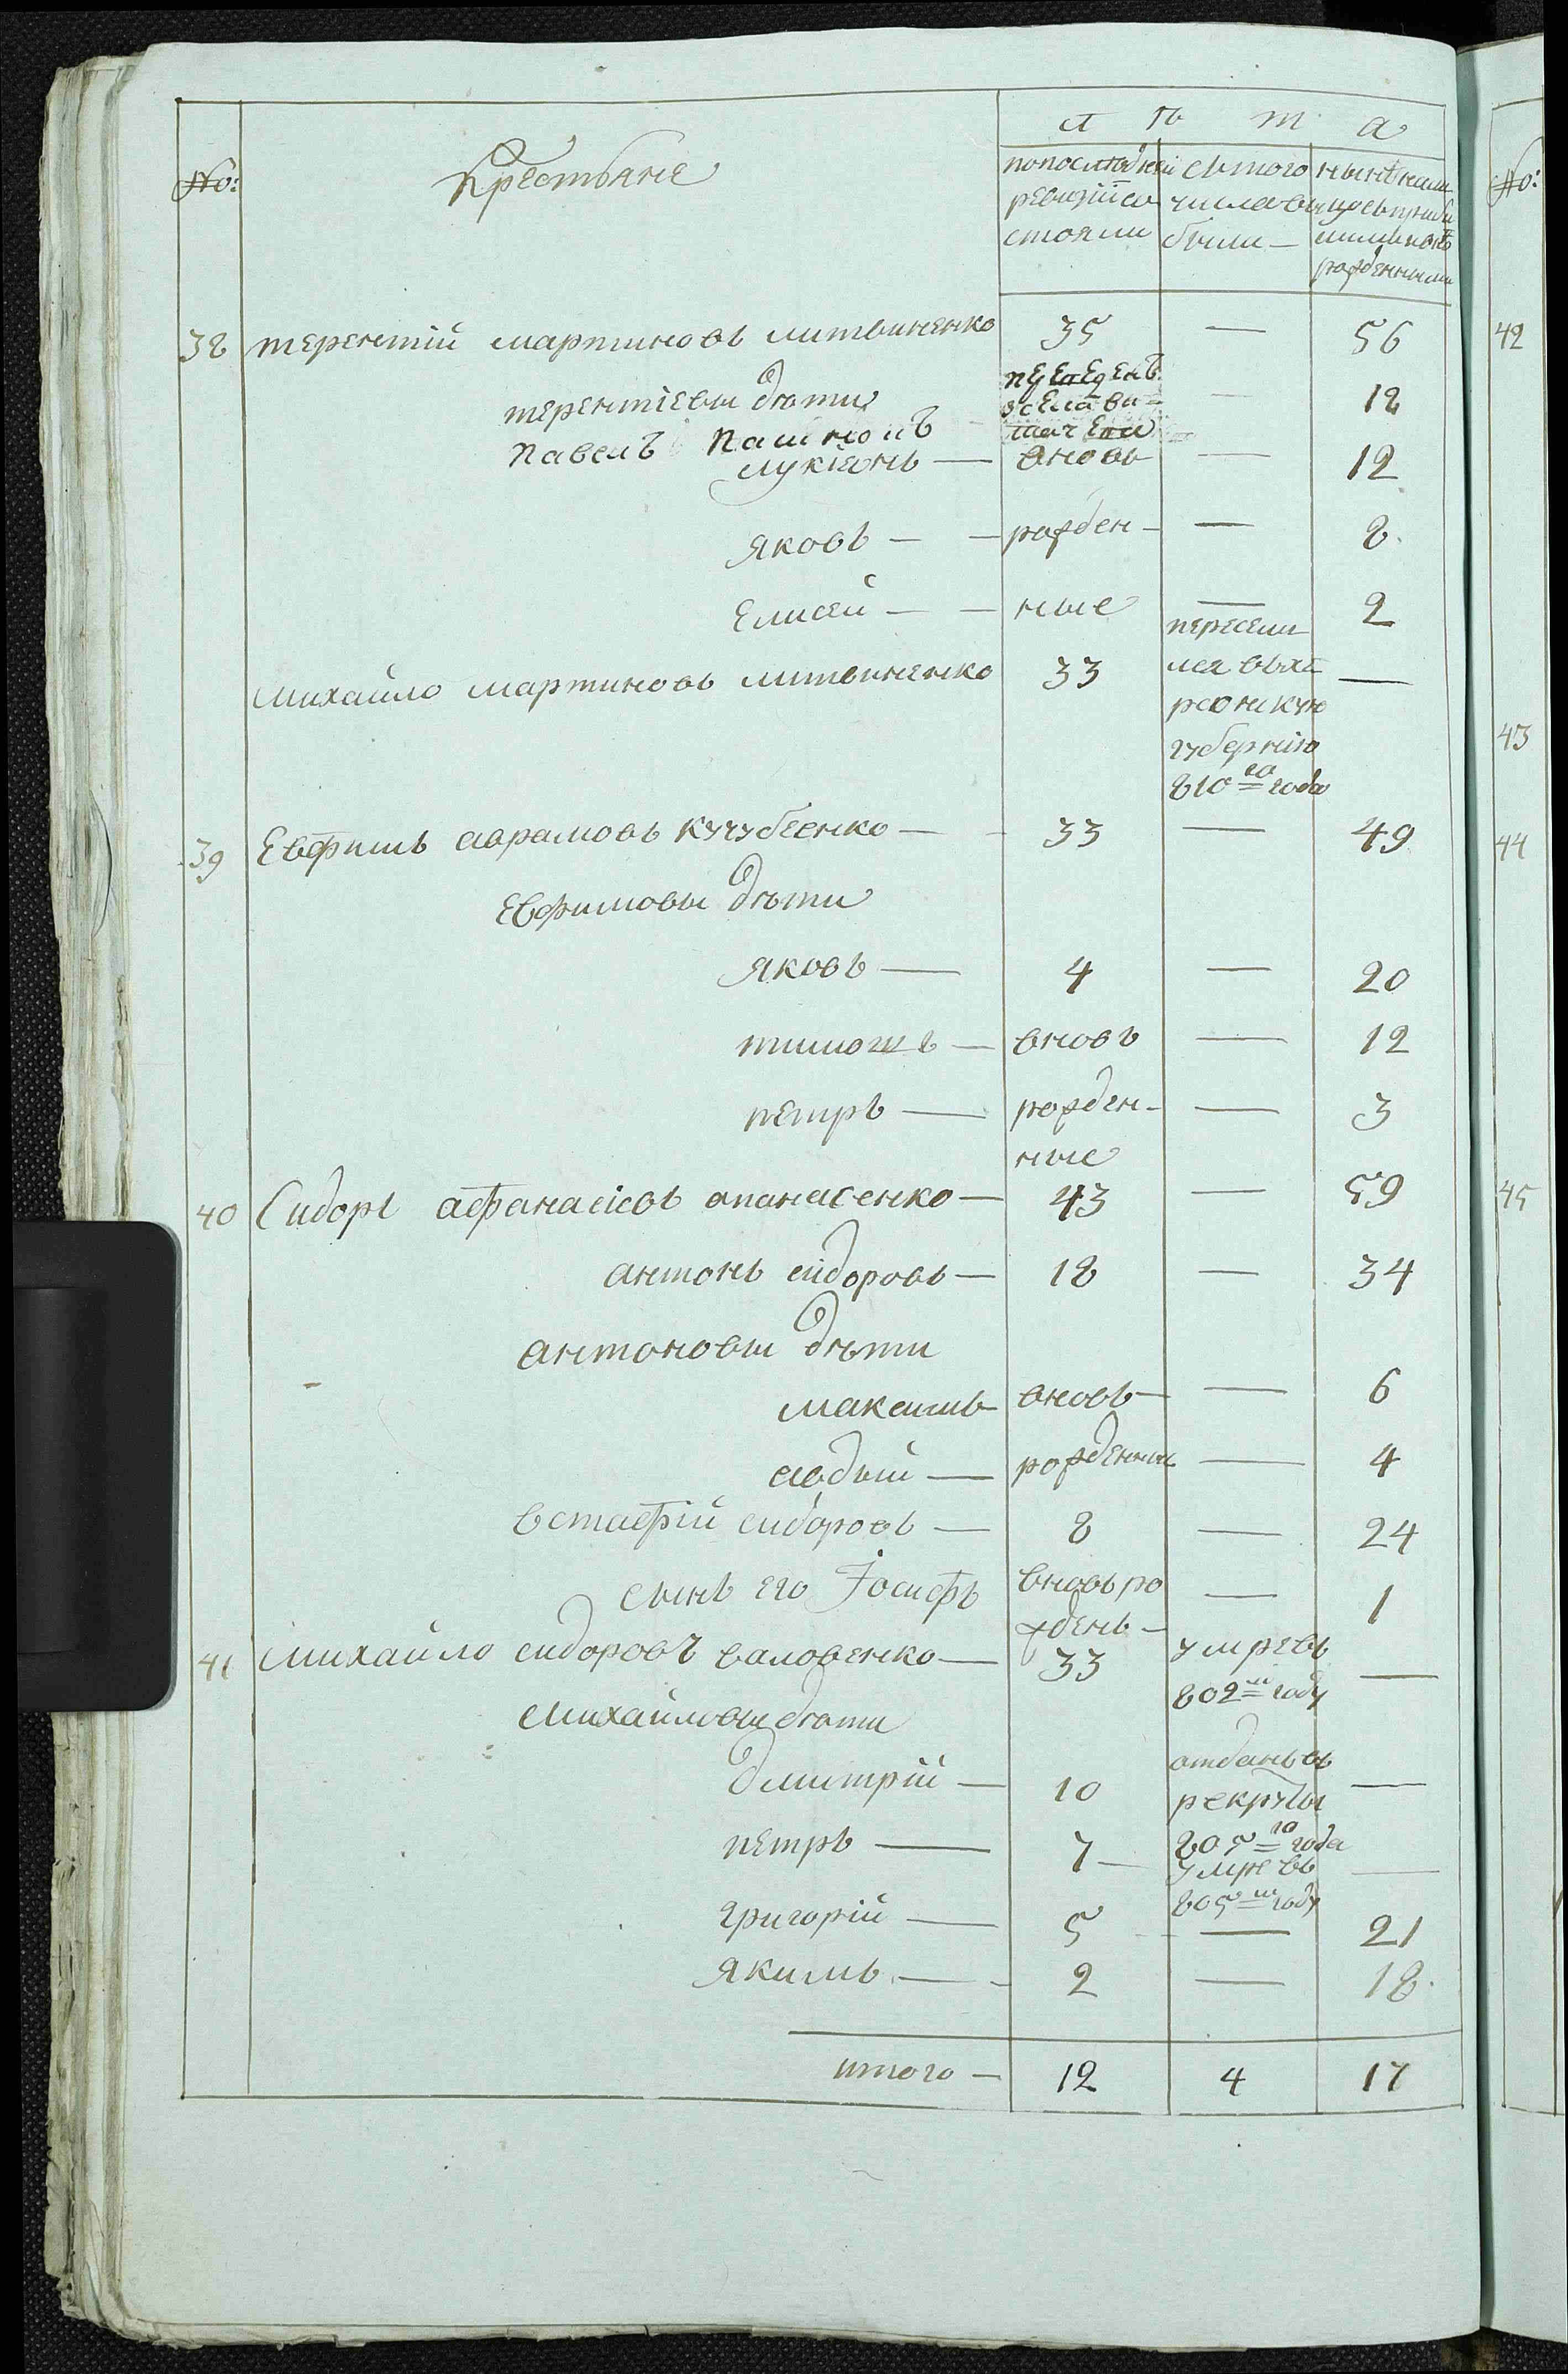 №: Крестьяне лѣта
попослѣдней ревизіи со стояли
съ того числа вы были —
нынѣ нали цо съ приба шимы послѣ рожденными
38 терентій мартиновъ литвиненко 35 — 56
терентіевы дѣти
павелъ пашнюкъ переведенъ — 18
лукіянъ — вновь — 12
яковъ — — рожден- — 8
Елисей — — ные — 2
михайло мартиновъ литвиненко 33 пересели лся въ хе рсонскую губернію 810го года —
39 Евфимъ аврамовъ кучубеенко — 33 — 49
Евфимовы дѣти
яковъ — 4 — 20
тимошъ — вновь — 12
петръ — рожден- ные — 3
40 Сидоръ афанасіевъ опанасенко — 43 — 59
антонъ сидоровъ — 18 — 34
антоновы дѣти
максимъ вновь — — 6
авдій — рожденные — 4
Естафій сидоровъ — 8 — 24
сынъ его Іосифъ вновь ро жденъ — — 1
41 михайло сидоровъ валовенко — 33 умре въ 802м году —
михайловы дѣти
дмитрій — 10 отданъ въ рекруты 805го года —
петръ — 7 — умре въ 805м году —
григорій — 5 — 21
якимъ — 2 — 18
итого — 12 4 17
№:
42
43
44
45